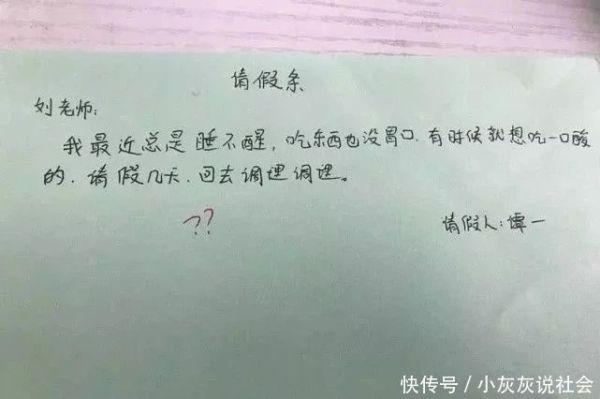 请假条
刘老师:
我最近总是睡不醒，吃东西也没胃口.有时候就想吃一口酸
的.请假几天.回去调理调理。
??
请假人:谭一
快传号/小灰灰说社会